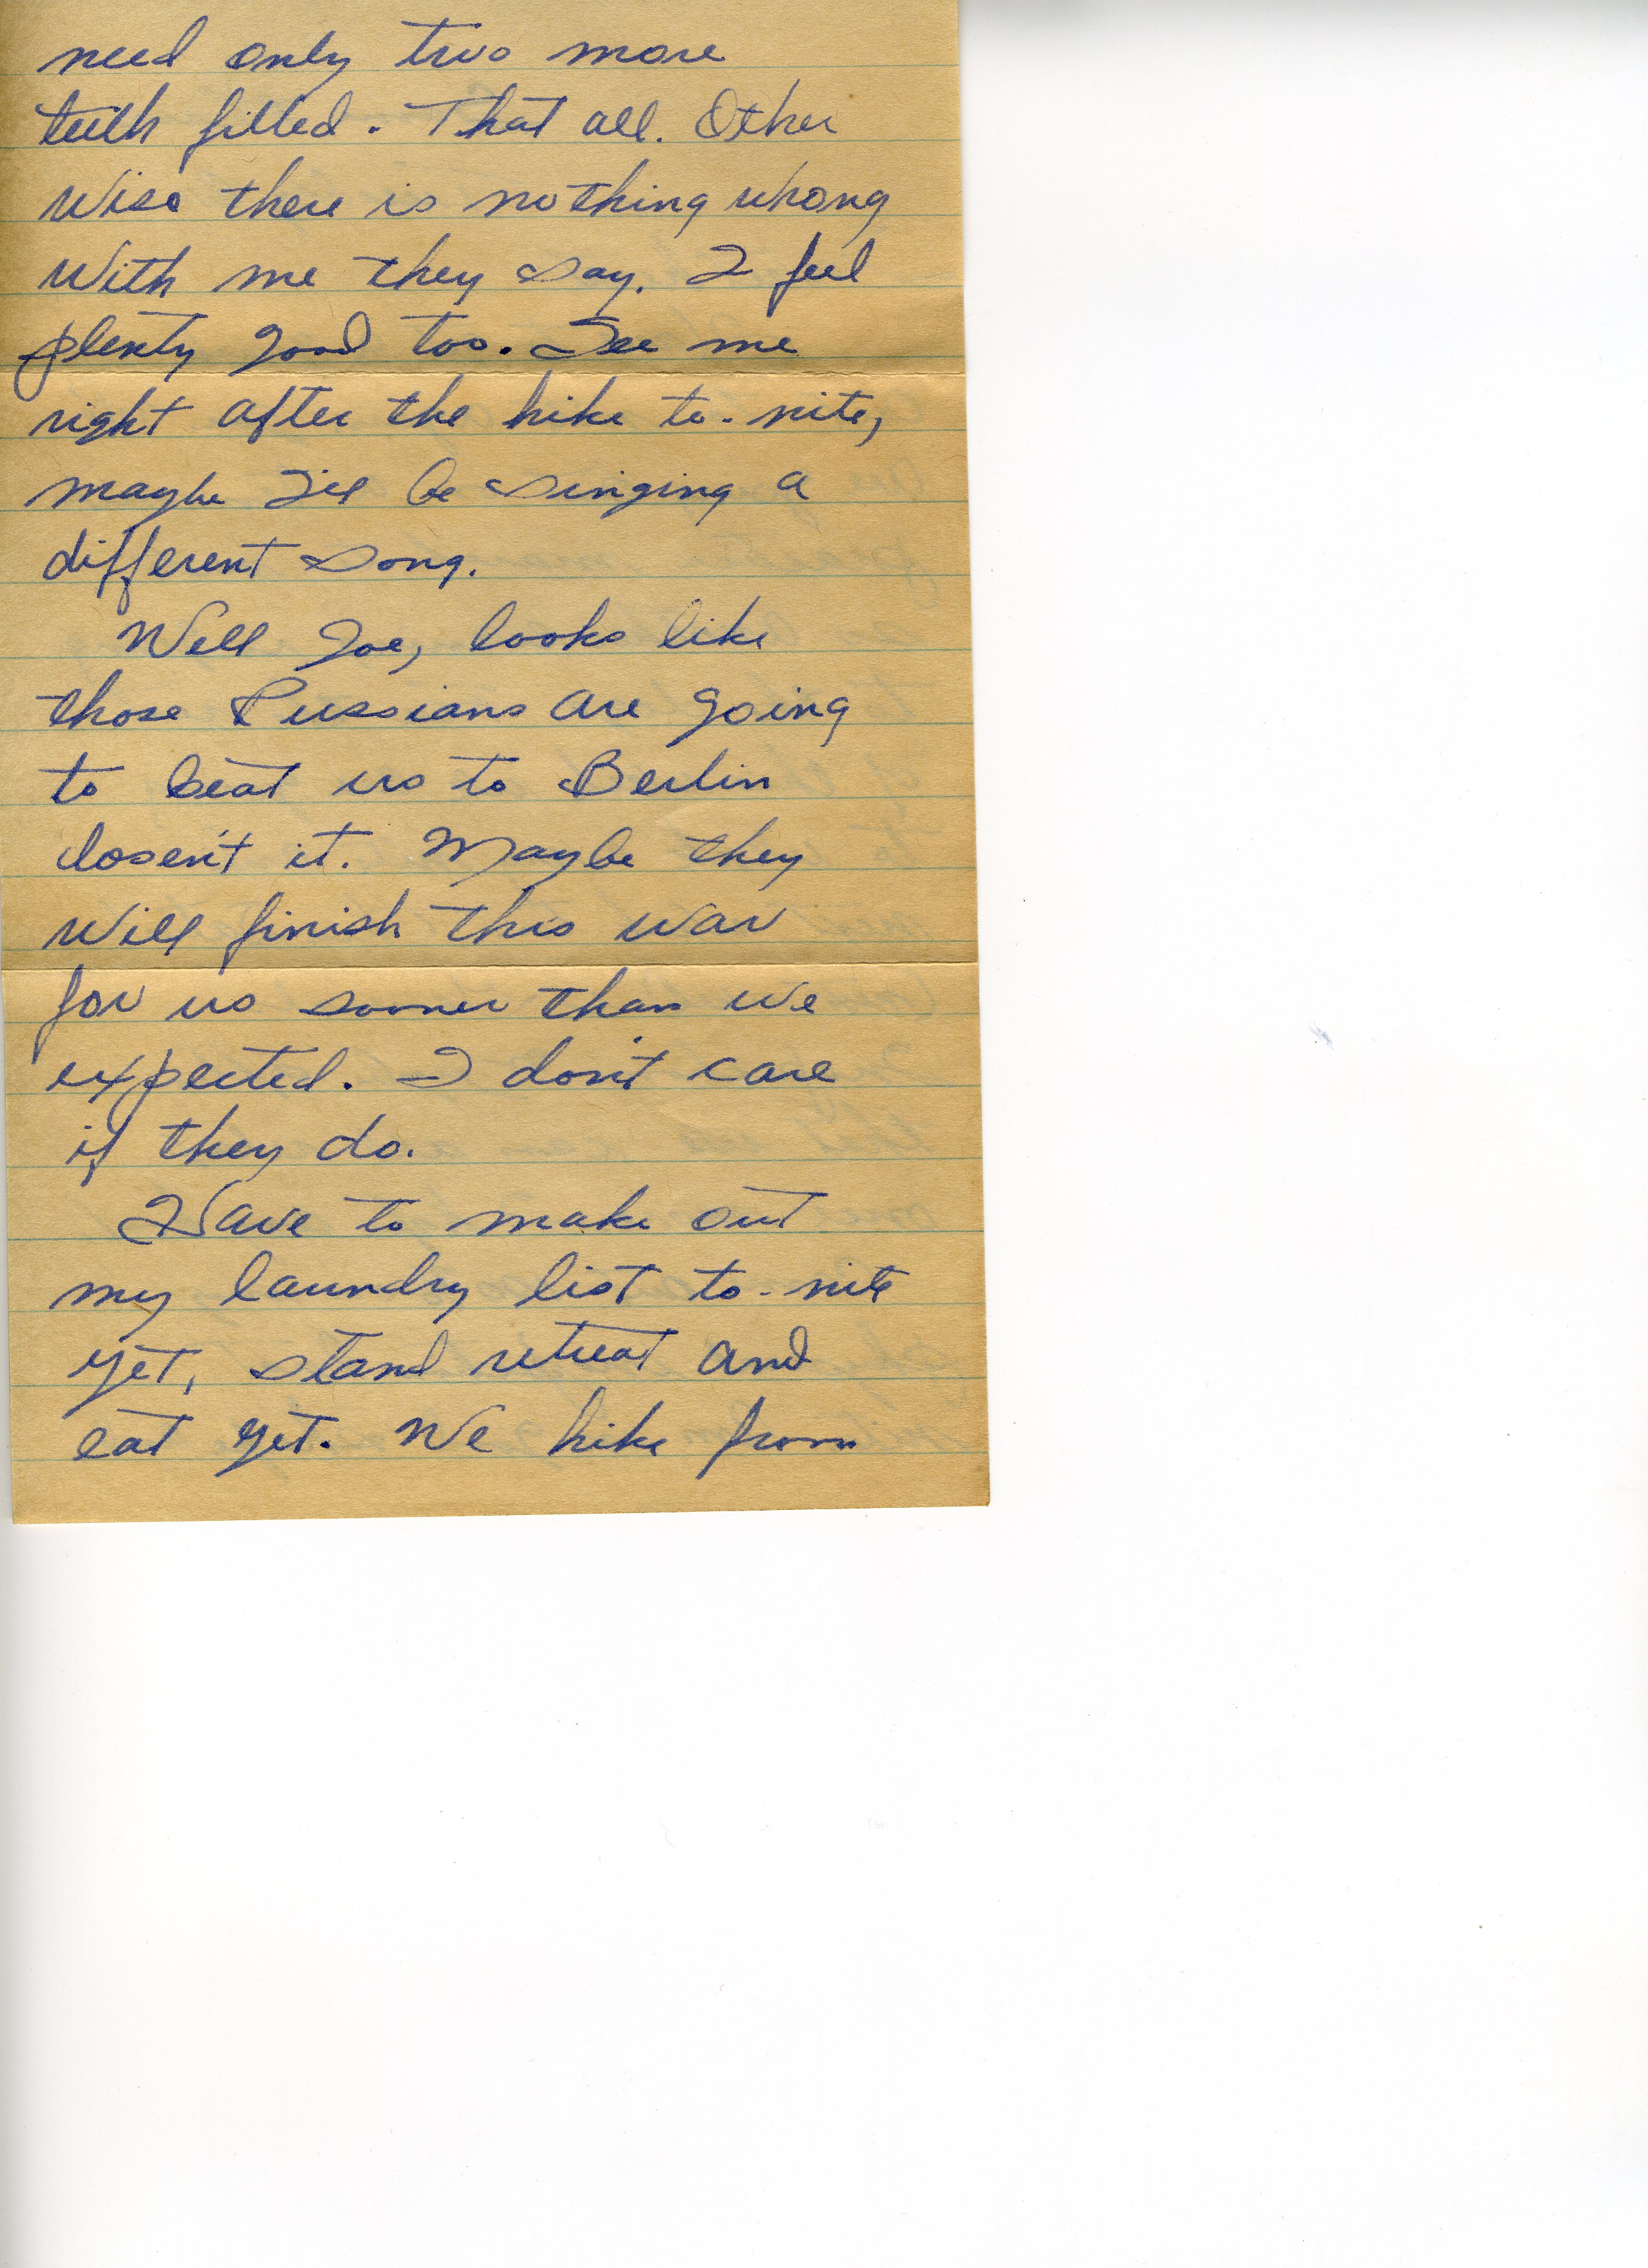 need only two more
teeth filled. That all. Other
wise there is nothing wrong
with me they say. I feel
plenty good too. See me
right after the hike to-nite,
maybe I'll be singing a
different song.
Well Joe, looks like
those Russians are going
to beat us to Berlin
dosen't it. Maybe they
will finish this war
for us sooner than we
expected. I don't care
if they do.
Have to make out
my laundry list to-nite
yet, stand retreat and
eat yet. We hike from